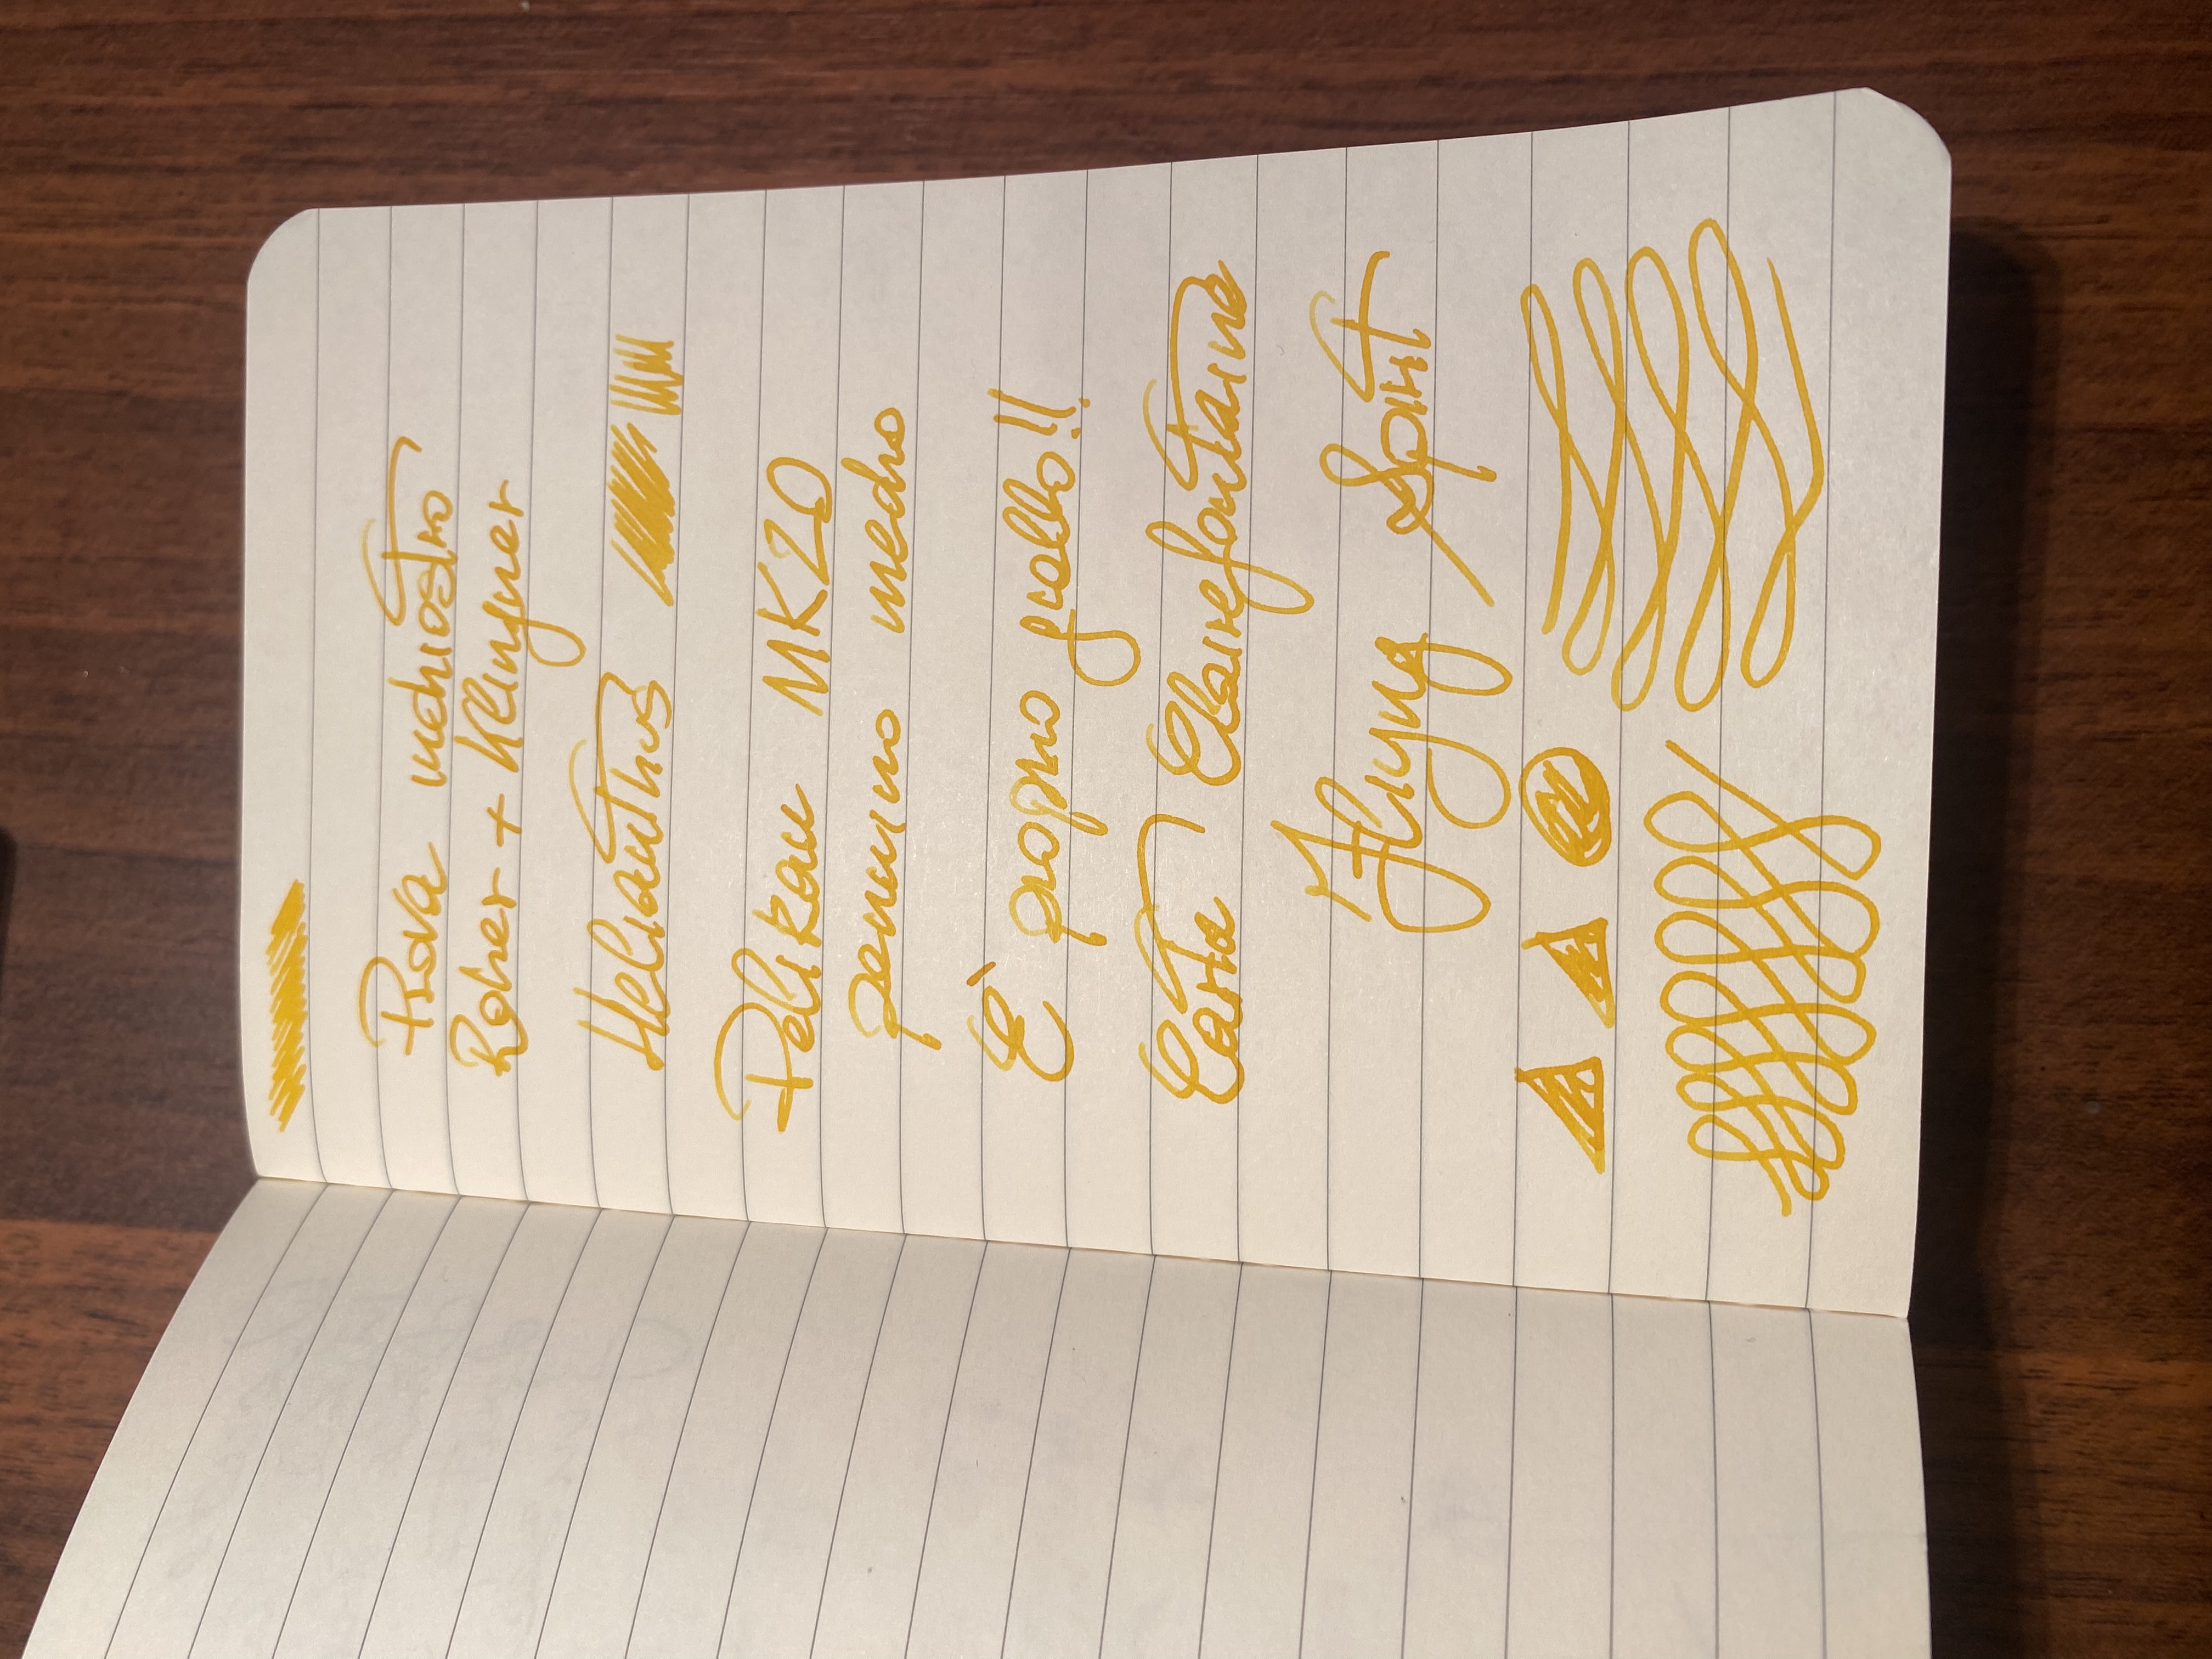 Prova inchiostro
Roher + Klingner
Helianthus
Pelikan MK20
pennino medio
È proprio giallo!!
Carta Clairefontaine
Flying Spirit